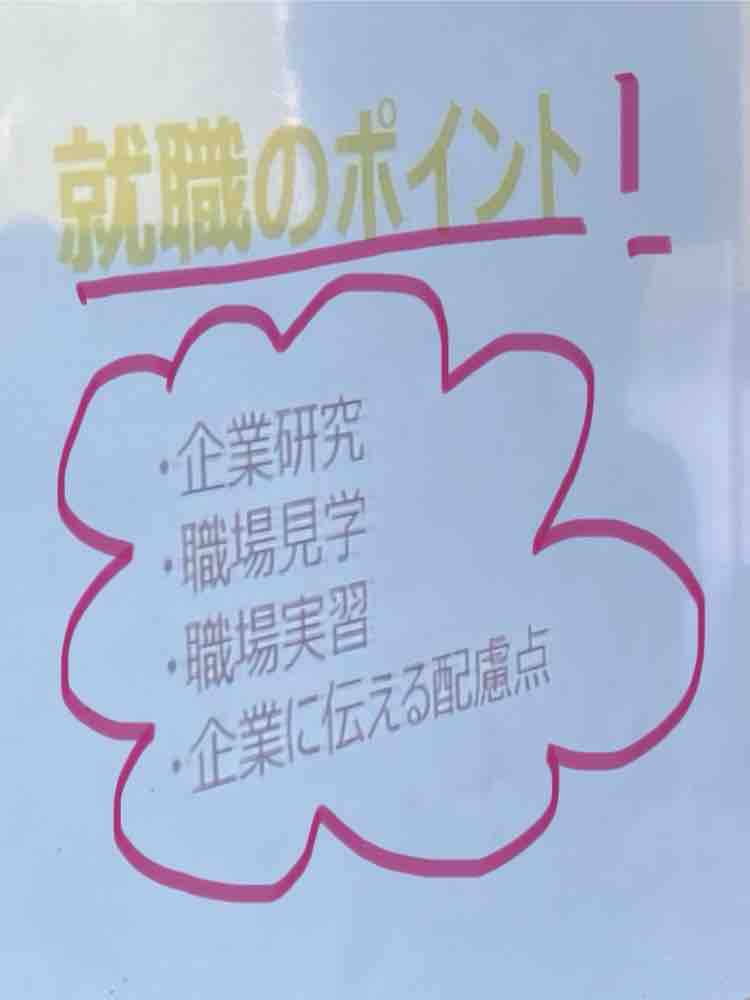 就職のポイント!
・企業研究
・職場見学
・職場実習
・企業に伝える配慮点